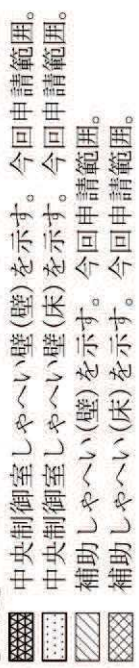 中央制御室しゃへい壁(壁)を示す。今回申請範囲。
中央制御室しゃへい壁(床)を示す。今回申請範囲。
補助しゃへい(壁)を示す。今回申請範囲。
補助しゃへい(床)を示す。今回申請範囲。